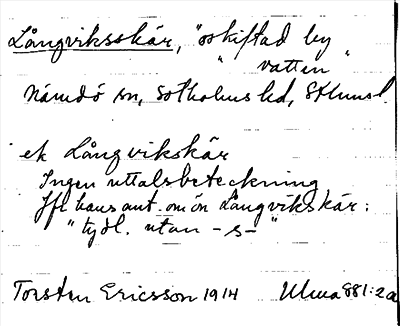 Långviksskär, "oskiftad by
" vatten "
Nämdö sn, Sotholms hd, Sthms l.
ek Långvikskär
Ingen uttalsbeteckning
Jfr hans ant. om ön Långvikskär:
"tydl. utan -s-"
Torsten Ericsson 1914 Ulma 881:2a